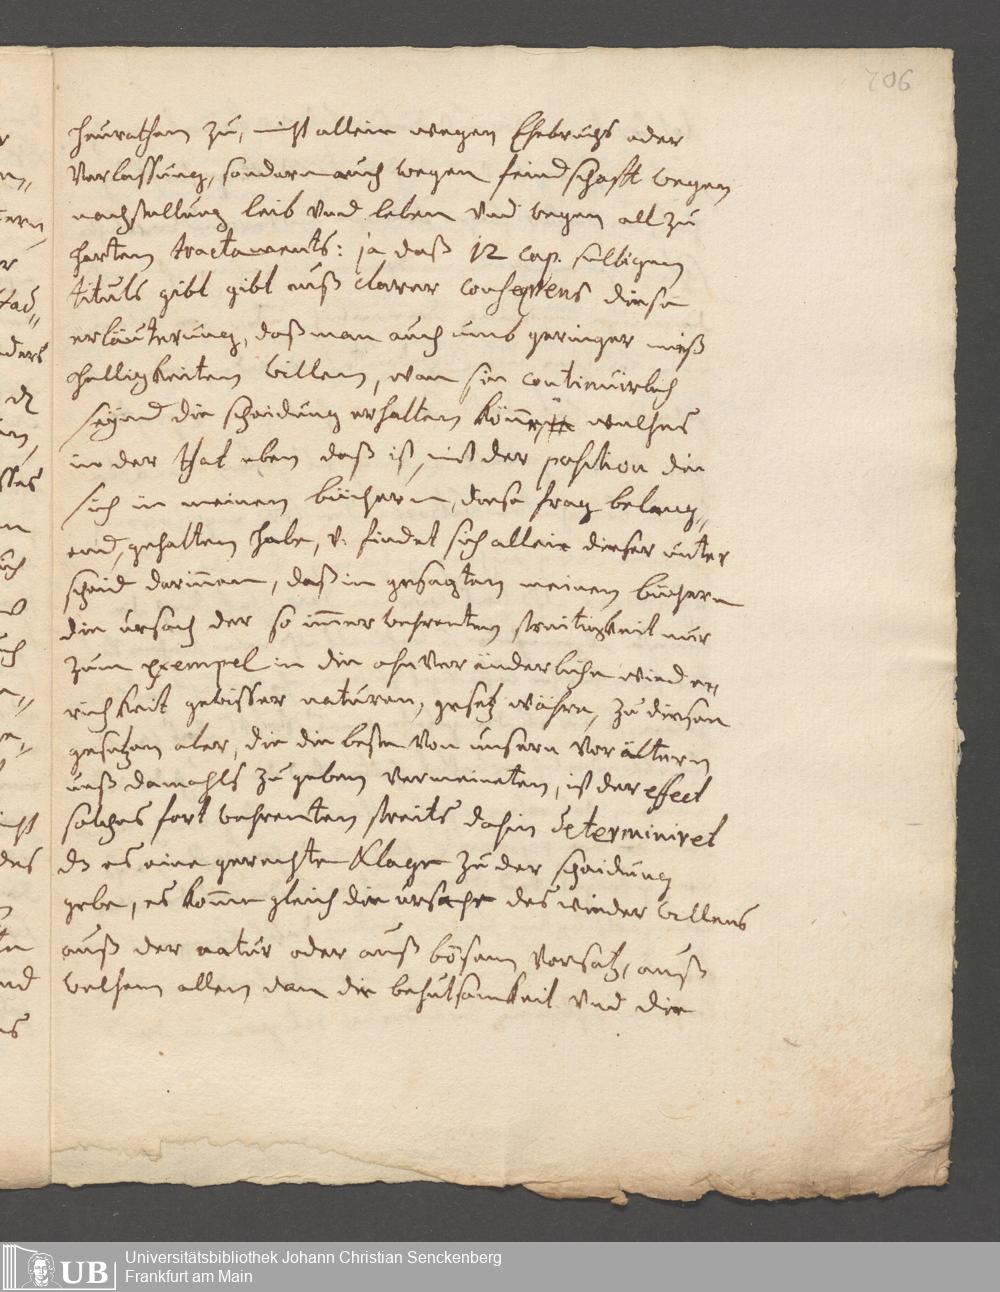 206
heurathen zu, nicht allein wegen Ehebruchs oder
Verlassung, sondern auch wegen feindschafft wegen
nachstellung leib vnd leben vnd wegen all zu
harten tractaments: ja daß 12 cap. selbigen
tituls gibt gibt auß clarer consequens diese
erläuterung, daß man auch umb geringer miß
helligkeiten willen, wan sie continuirlich
seyend die scheidung erhalten könne welches
in der that eben daß ist, mit der position die
sich in meinen büchern, diese frag belang,
end, gehalten habe, v. findet sich allein dieser unter
scheid darinnen, daß in gesagten meinen büchern
die ursach der so immer wehrenten streitigkeit nur
zum exempel in die ohnveränderliche wieder,
richkeit gewisser naturen, gesetz währe, zu diesen
gesetzen aber, die die beste von unsern Vorältern
unß damahls zu geben vermeineten, ist der effect
solches fort wehrenten streits dahin determiniret
dz es eine gerechte Klage zu der scheidung
gebe, es komme gleich die ursache des wieder willens
auß der natur oder auß bösem Vorsatz, auß
welchem allem dan die behutsamkeit vnd die
UB
Universitätsbibliothek Johann Christian Senckenberg
Frankfurt am Main